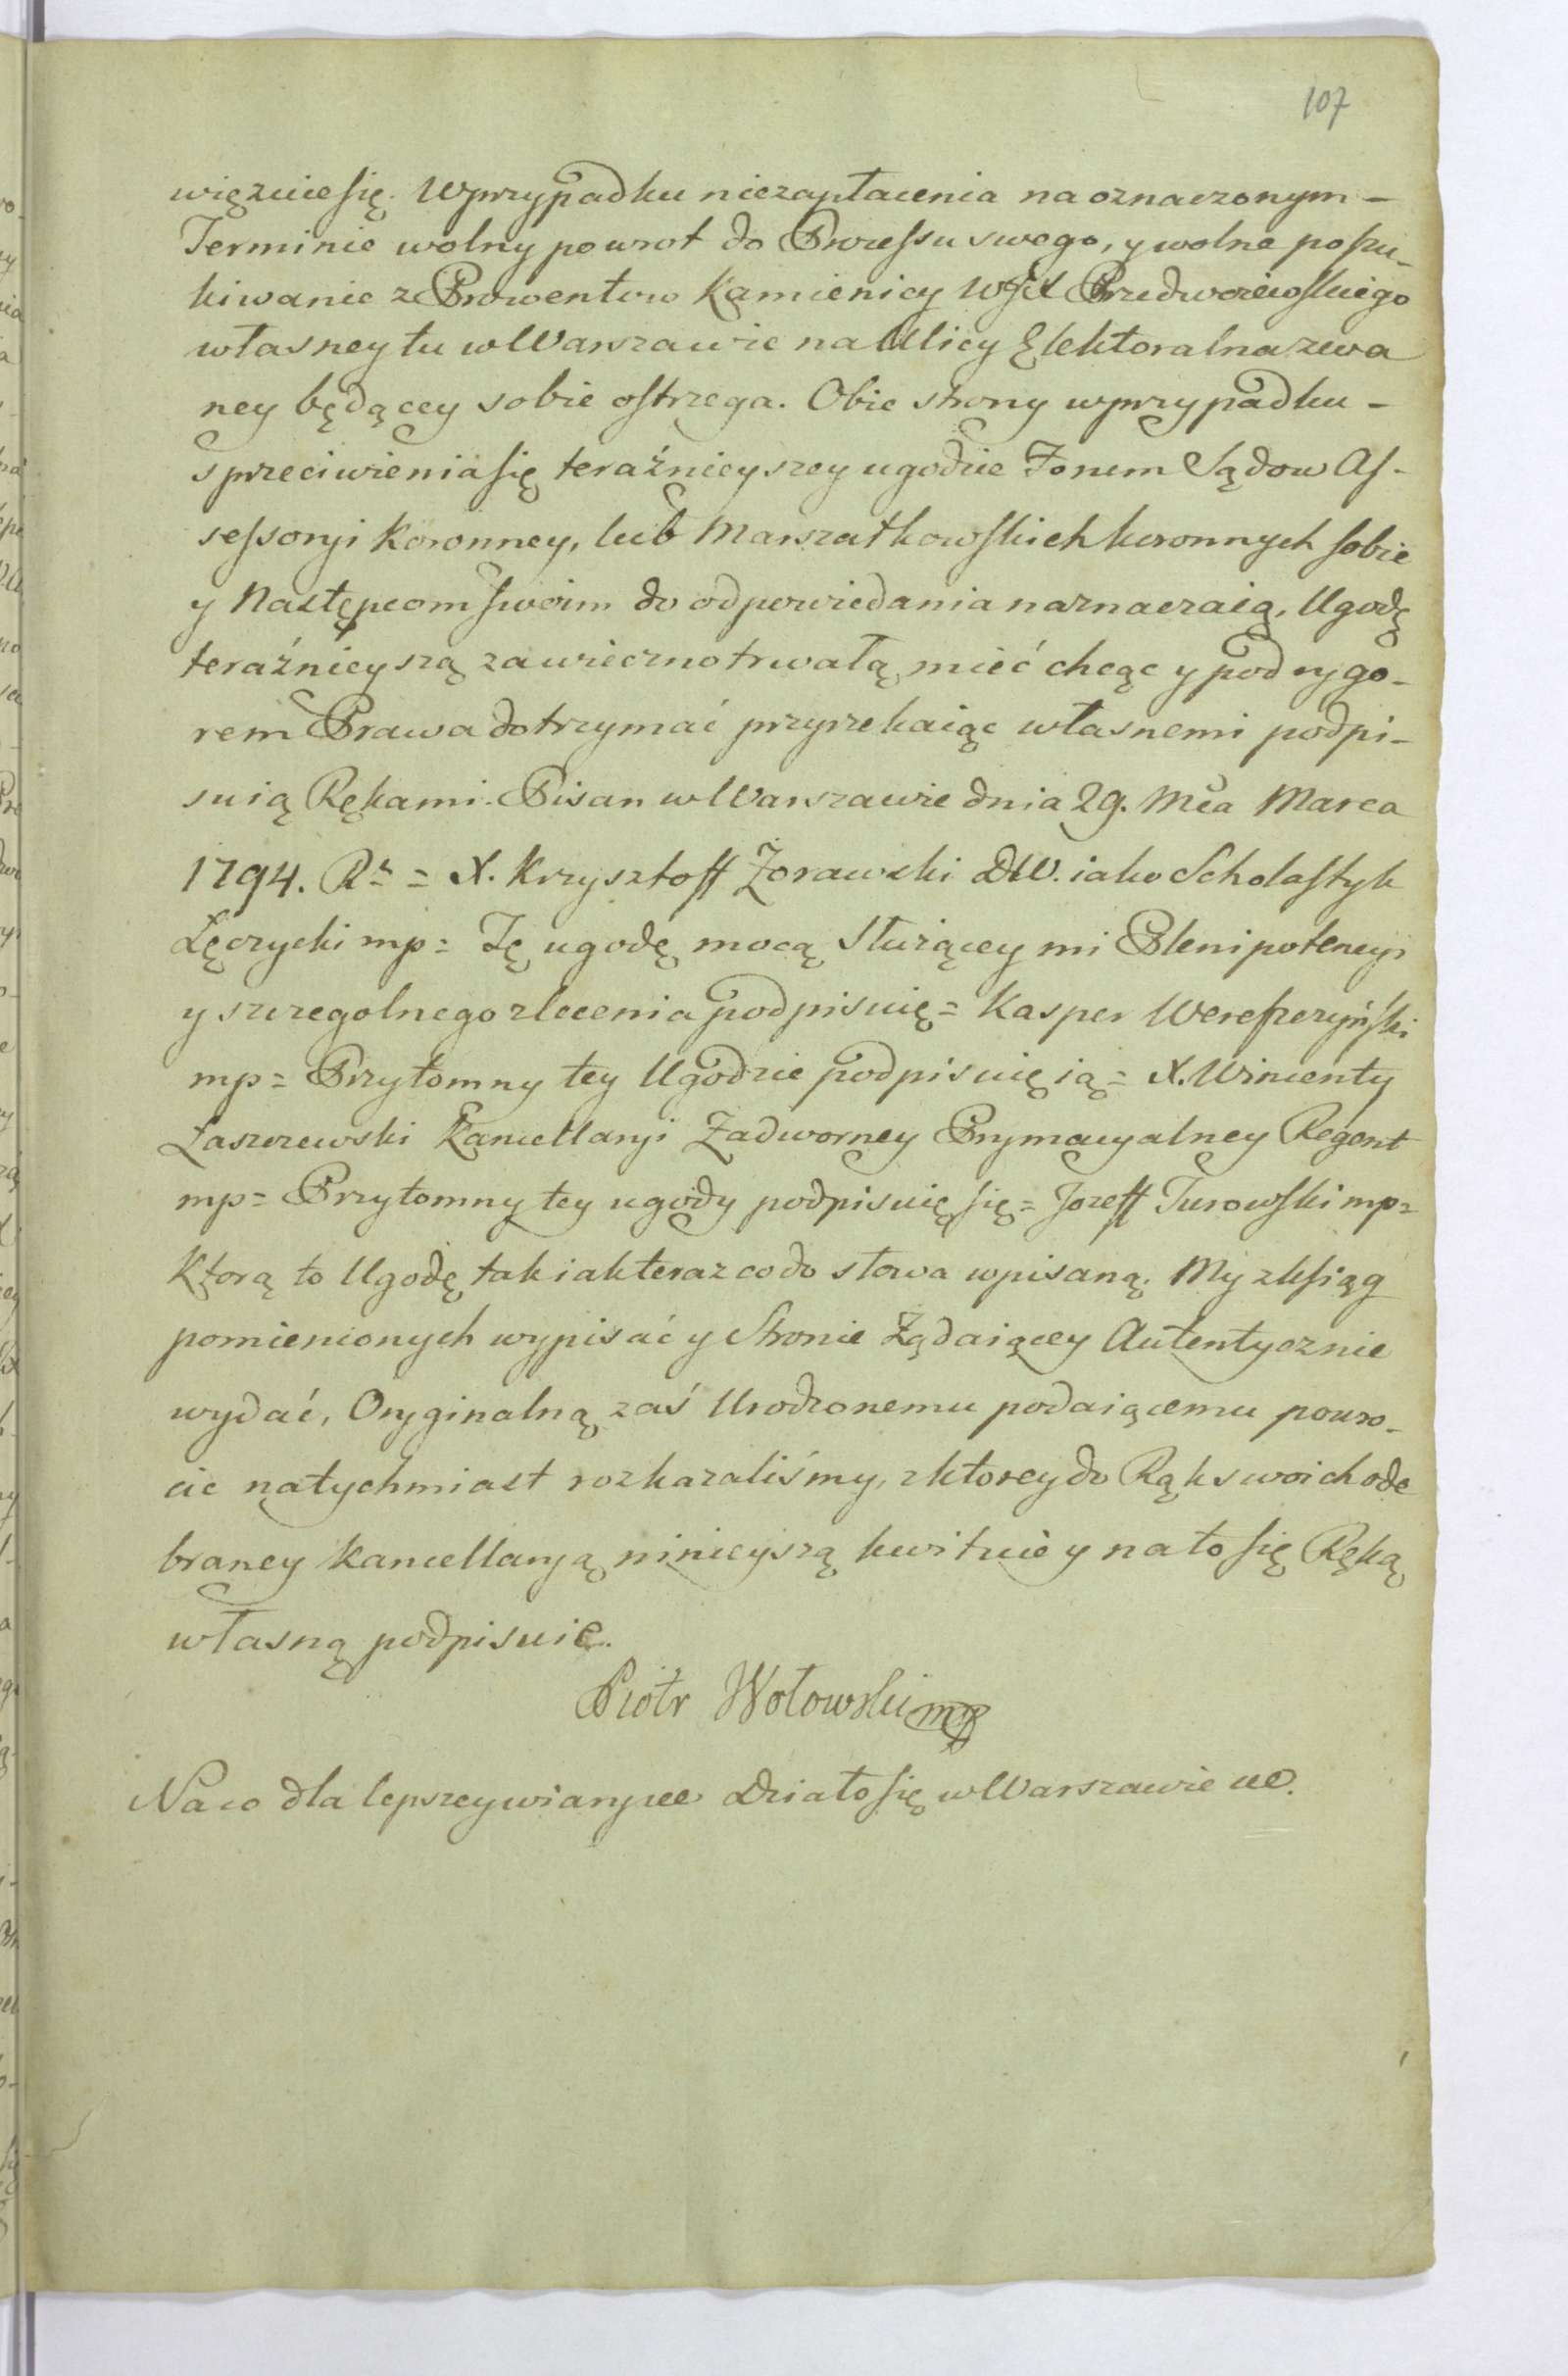 107
więzuie się. W przypadku niezapłacenia na oznaczonym –
Terminie wolny powrot do Processu swego, y wolne poszu-
kiwanie z Prowentow Kamienicy Przedworzewskiego
własney tu w Warszawie na Ulicy Elektoralna zwa
ney będącey sobie ostrzega. Obie strony w przypadku –
sprzeciwienia się teraźnieyszey ugodzie Forum Sądow As-
sessoryi Koronney, lub Marszałkowskich koronnych sobie
y Następcom swoim do odpowiedania naznaczaią, Ugodę
teraźnieyszą za wieczno trwałą mieć chcąc y pod rygo-
rem Prawa dotrzymać przyrzekaiąc własnemi podpi-
suią Rękami. Pisan w Warszawie dnia 29. Mca Marca
1794. Rʳ = X. Krzysztoff Żorawski DW. iako Scholastyk
Łęczycki mp = Tę ugodę mocą służącey mi Plenipotencyi
y szczegolnego zlecenia podpisuię = Kasper Wereszczyński
mp = Przytomny tey Ugodzie podpisuię ią = X. Wincenty
Łaszczewski Kancellaryi Zadworney Prymacyalney Regent
mp = Przytomny tey ugody podpisuię się = Jozeff Turowski mp =
Ktorą to Ugodę tak iak teraz co do słowa wpisaną. My z ksiąg
pomienionych wypisać y Stronie Żądaiącey Autentycznie
wydać, Oryginalną zaś Urodzonemu podaiącemu powro-
cic natychmiast rozkazaliśmy, z ktorey do Rąk swoich ode
braney kancellaryą ninieyszą kwituie y na to się Ręką
własną podpisuie.
Piotr Wołowski mp
Na co dla lepszey wiary etc Działo się w Warszawie etc.